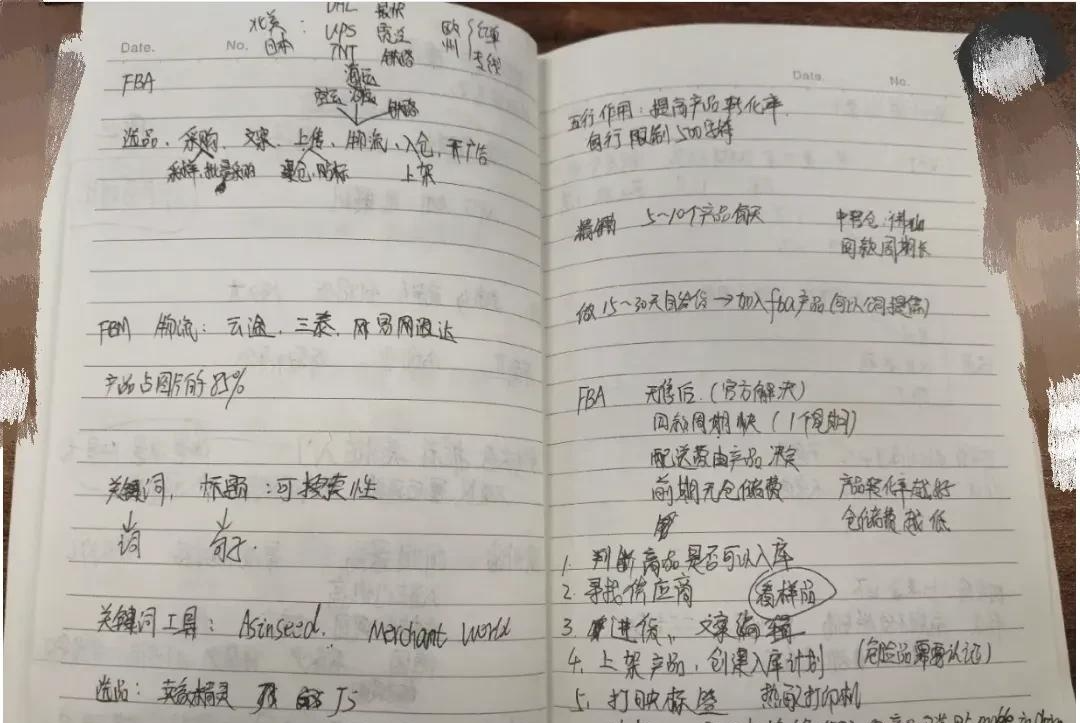 北美 : DHL 最快
日本 UPS 宽泛 欧州 红单
TNT 铁路 专线
Date. No.
FBA
海运
空运 铁路
选品、采购、文案、上传、物流、入仓、开广告
采样,批量采购 建仓,贴标 上架
FBM 物流: 云途、三泰、网易网速达
产品占图片的85%
关键词, 标题:可搜索性
词 句子.
关键词工具: Asinseed. Merchant World
选品: 卖家精灵 JS
Date. No.
五行作用:提高产品转化率.
每行限制500字符
5~10个产品每天 中转仓:
回款周期长
做15~30天自发货→加入fba产品(可以公司提供)
FBA 无售后.(官方解决)
回款周期快(1个星期)
配送费由产品决定
前期无仓储费 产品转化率越好
仓储费越低
1. 判断商品是否可以入库
2. 寻找供应商 看样品
3. 进货、文案编辑
4. 上架产品,创建入库计划 (危险品需要认证)
5. 打印标签 热敏打印机